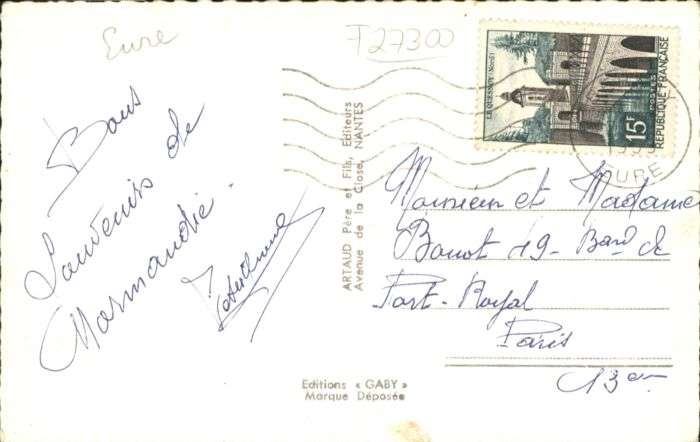 Eure
T27300
Bons
Souvenirs de
Normandie.
ARTAUD Père et Fils, Editeurs
Avenue de la Close, NANTES
Editions « GABY »
Marque Déposée
LE QUESNOY (Nord)
15F
POSTES
REPUBLIQUE FRANÇAISE
EURE
Monsieur et Madame
49 - Bard de
Port-Royal
Paris
13em